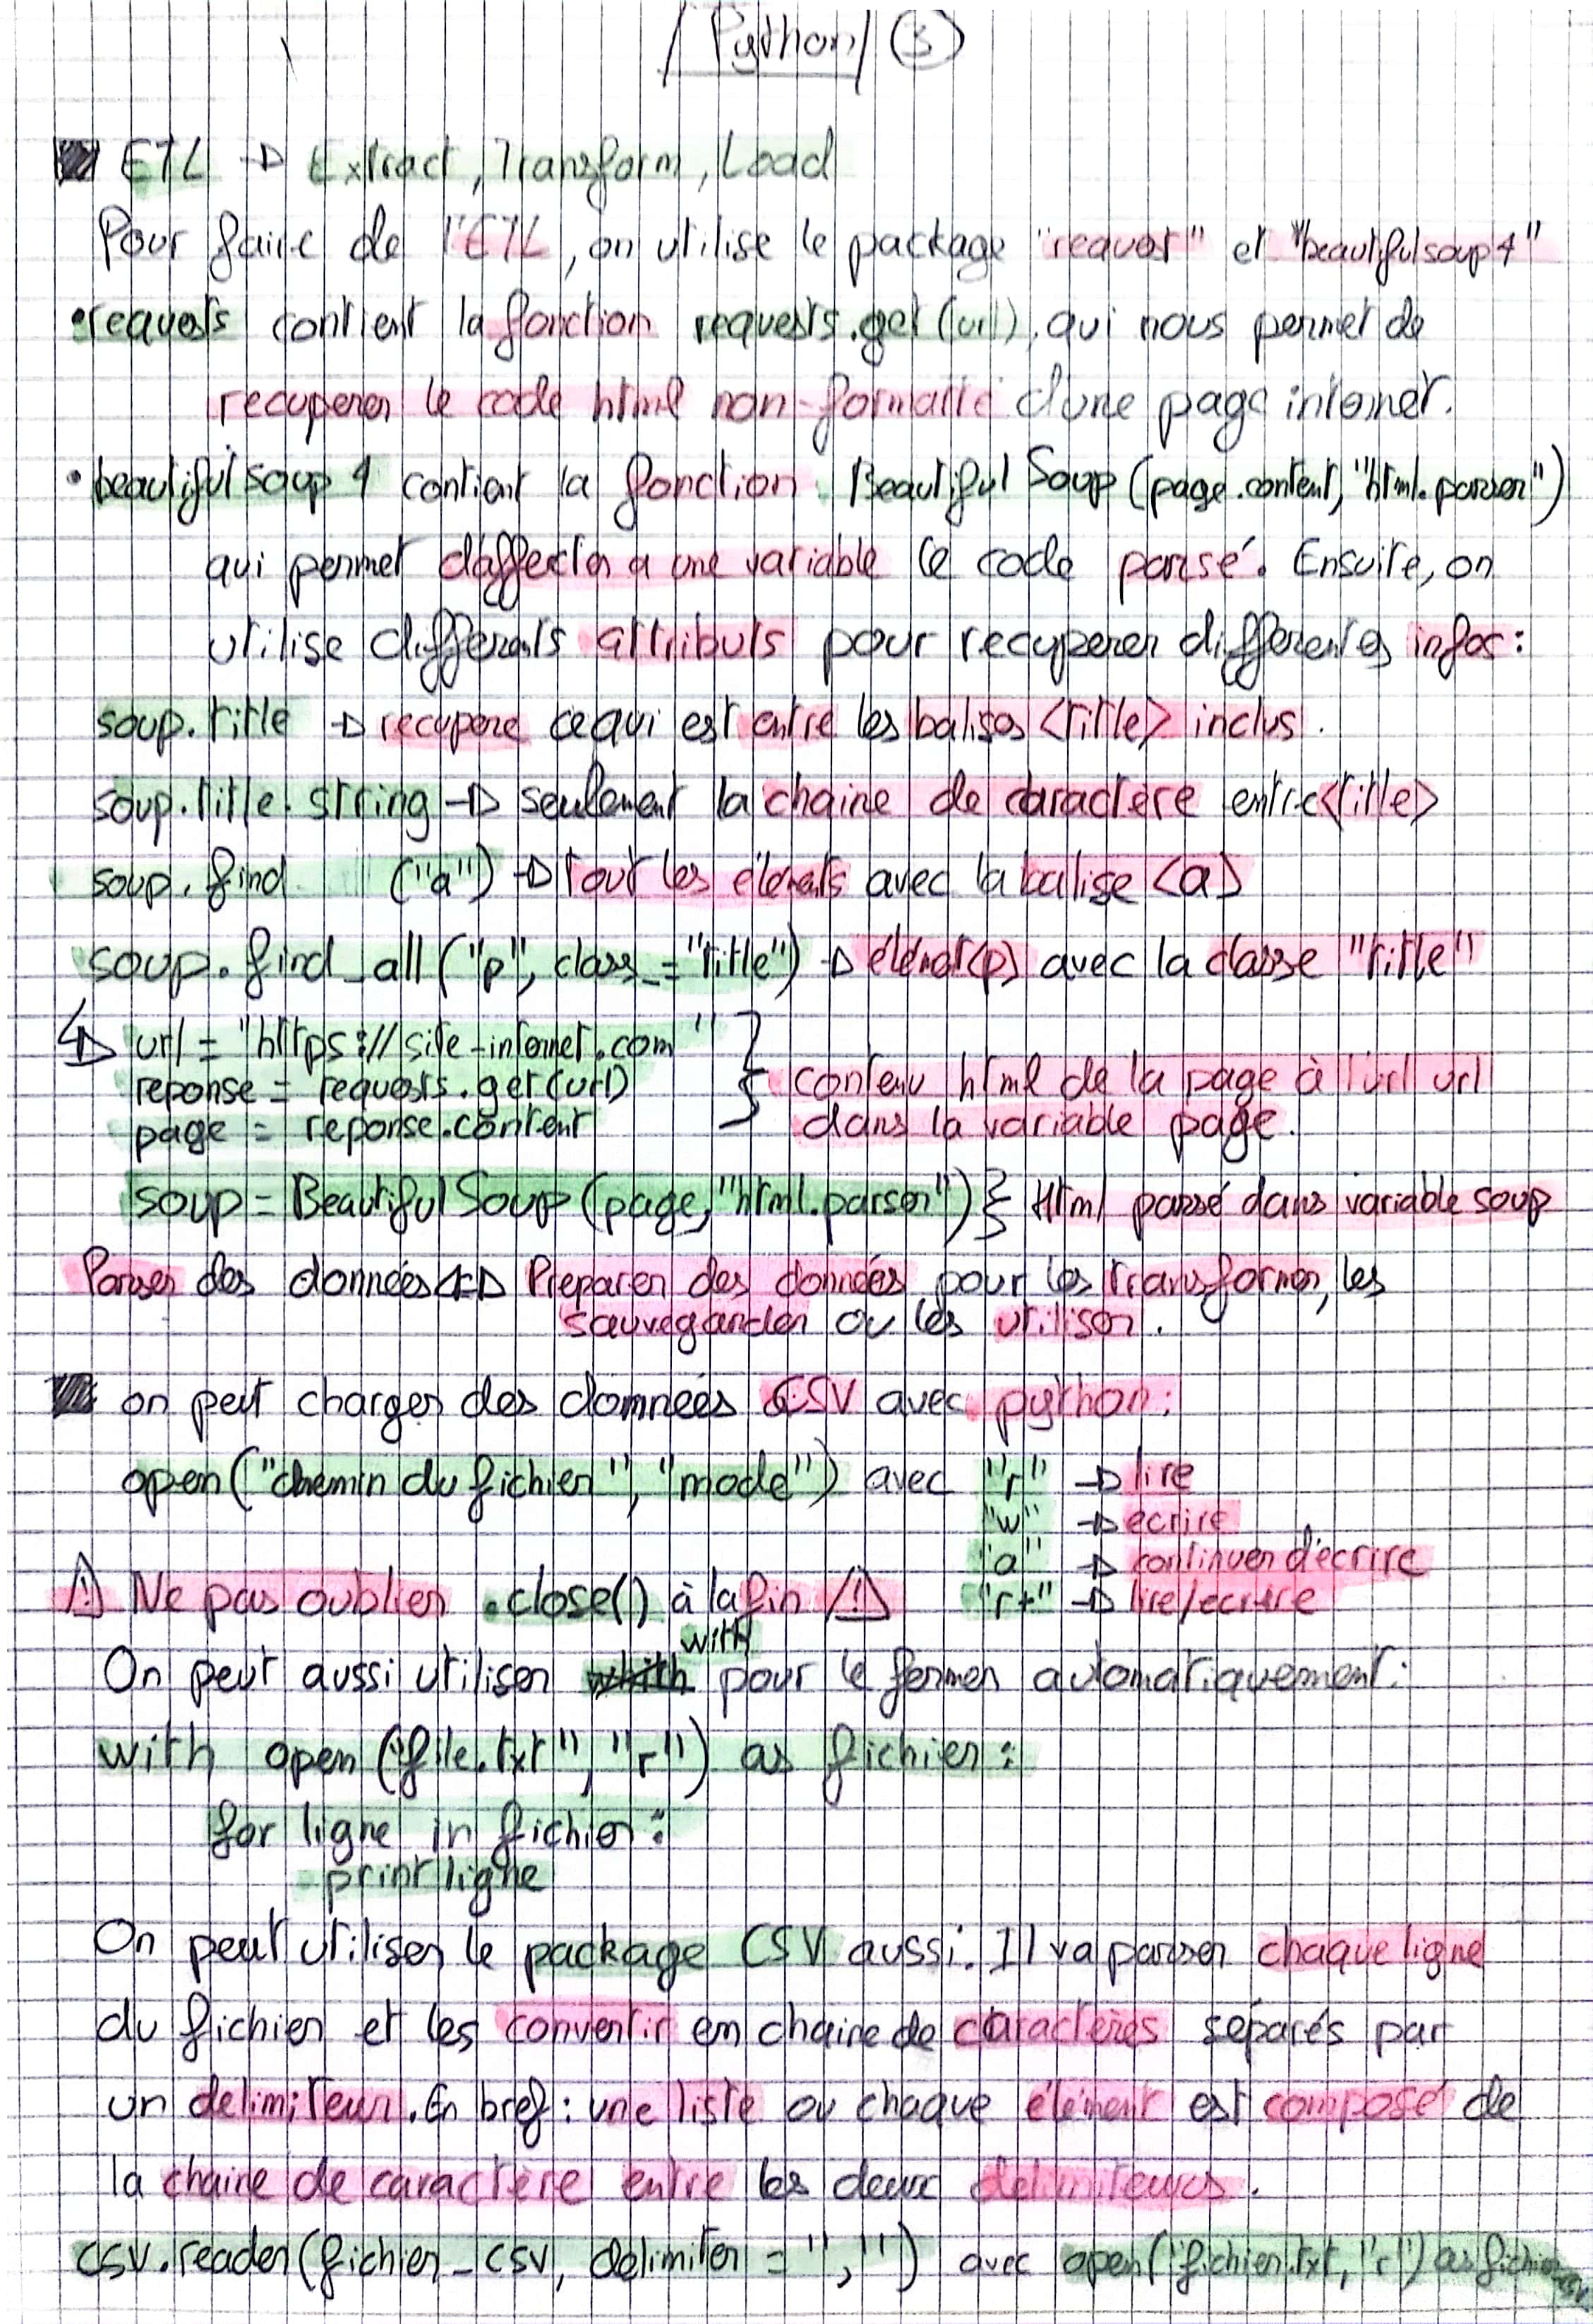 Python (3)
ETL → Extract, Transform, Load
Pour faire de l'ETL, on utilise le package "request" et "beautifulsoup4"
• requests contient la fonction requests.get(url), qui nous permet de
recuperer le code html non-formatté d'une page internet.
• beautifulsoup4 contient la fonction BeautifulSoup(page.content, "html.parser")
qui permet d'affecter a une variable le code parsé. Ensuite, on
utilise différents attributs pour recuperer differentes infos:
soup.title → recupere ce qui est entre les balises <title> inclus.
soup.title.string → seulement la chaine de caractere entre <title>
soup.find ("a") → tout les éléments avec la balise <a>
soup.find_all("p", class_="title") → élémet(p) avec la classe "title"
↳ url = "https://site-internet.com"
reponse = requests.get(url)
page = reponse.content
} contenu html de la page à l'url url
dans la variable page.
soup = BeautifulSoup(page, "html.parser") } Html parsé dans variable soup
Parser des données ⇔ Preparer des données pour les transformer, les
sauvegarder ou les utiliser.
on peut charger des données CSV avec python:
open("chemin du fichier", "mode") avec "r" → lire
"w" → ecrire
"a" → continuer d'écrire
"r+" → lire/ecrire
⚠ Ne pas oublier .close() à la fin ⚠
On peut aussi utiliser with pour le fermer automatiquement:
with open("file.txt", "r") as fichier:
for ligne in fichier:
print ligne
On peut utiliser le package CSV aussi. Il va parser chaque ligne
du fichier et les convertir en chaine de caractères séparés par
un delimiteur. En bref: une liste ou chaque élément est composé de
la chaine de caractère entre les deux delimiteurs.
csv.reader(fichier_csv, delimiter = ",") avec open("fichier.txt, "r") as fichier_csv